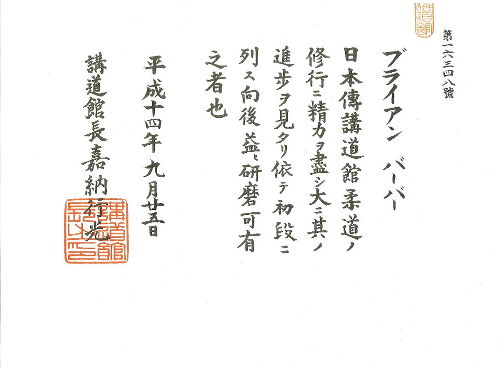 第一六三四八號
ブライアン バーバー
日本傳講道館柔道ノ
修行ニ精力ヲ盡シ大ニ其ノ
進歩ヲ見タリ依テ初段ニ
列ス向後益〻研磨可有
之者也
平成十四年九月廿五日
講道館長嘉納行光